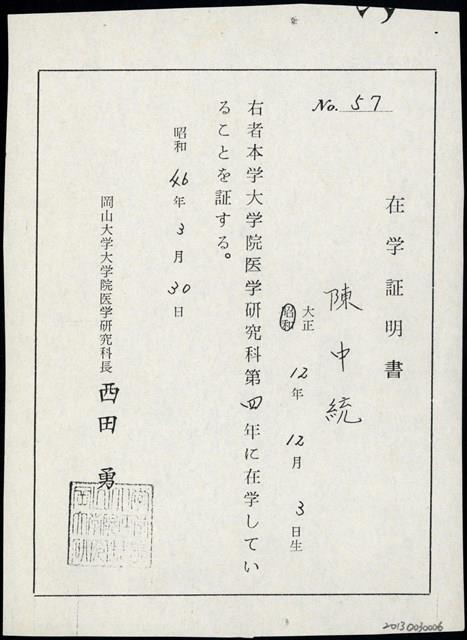 No. 57
在学証明書
陳中統
大正
昭和
12年 12月 3日生
右者本学大学院医学研究科第四年に在学してい
ることを証する。
昭和 46年 3月 30日
岡山大学大学院医学研究科長 西田 勇
20130030006